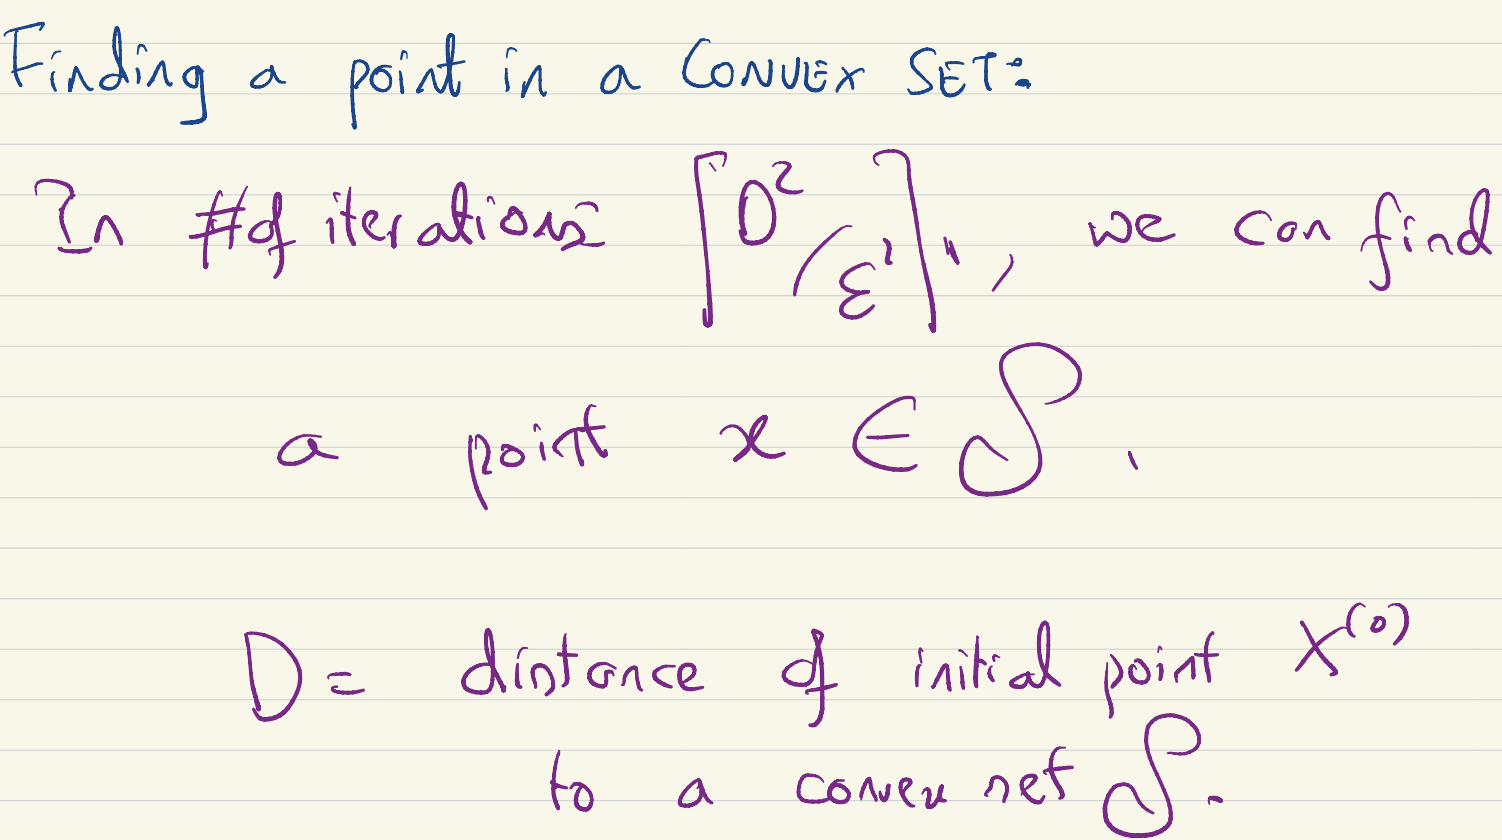 Finding a point in a CONVEX SET:
In # of iterations ⌈D²/ε²⌉, we can find
a point x ∈ S.
D = distance of initial point X⁽⁰⁾
to a convex set S.